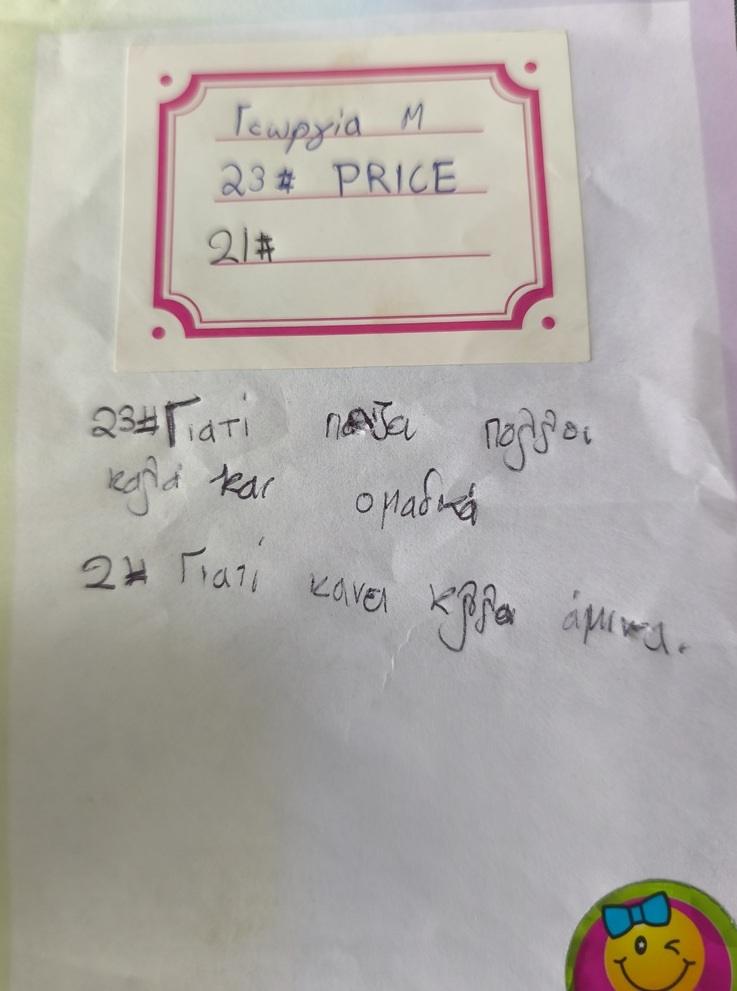 Γεωργία Μ
23# PRICE
21#
23# Γιατί παιζει πολλοι
καλά και ομαδικά
2# Γιατί κανει άμυνα.